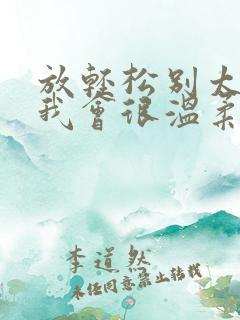 放轻松别太
我会很温柔
李道然
未经同意禁止转载